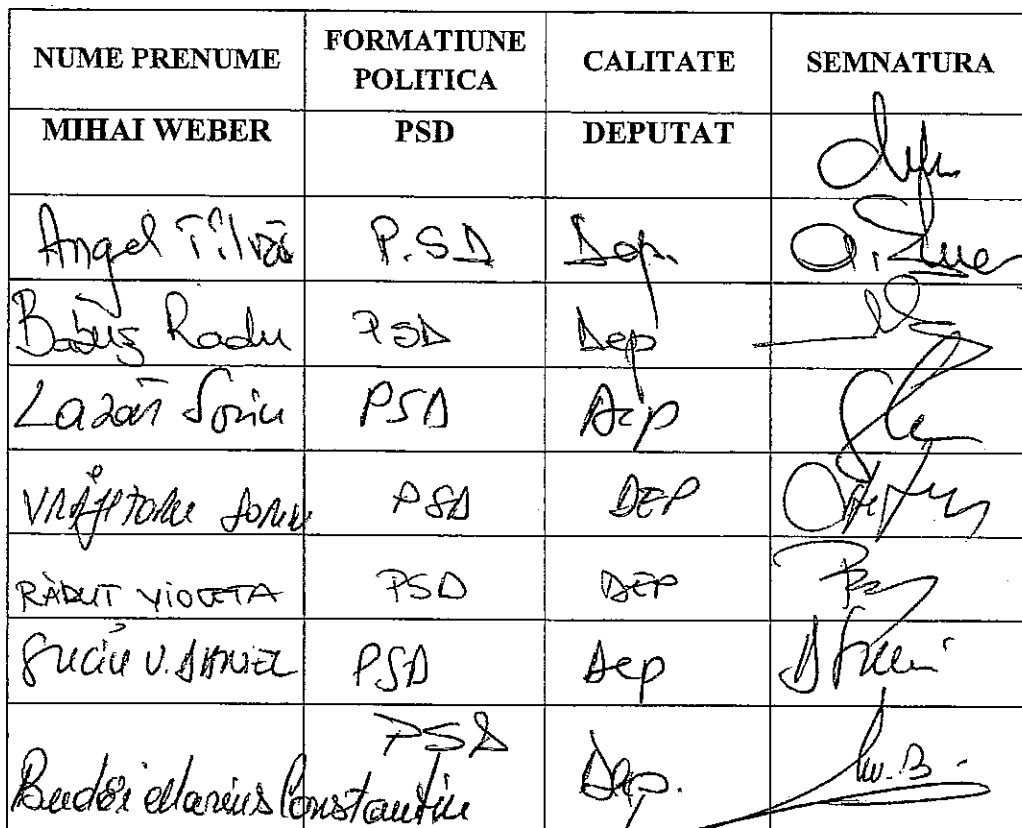 NUME PRENUME FORMATIUNE POLITICA CALITATE SEMNATURA
MIHAI WEBER PSD DEPUTAT
Angel Tîlvăr P.SD Dep.
Babuș Radu PSD Dep
Lazăr Sorin PSD Dep
VRĂJITORU SORIN PSD DEP
RĂDUT VIOLETA PSD DEP
Suciu V. DANIEL PSD Dep
Budăi Marius Constantin PSD Dep.